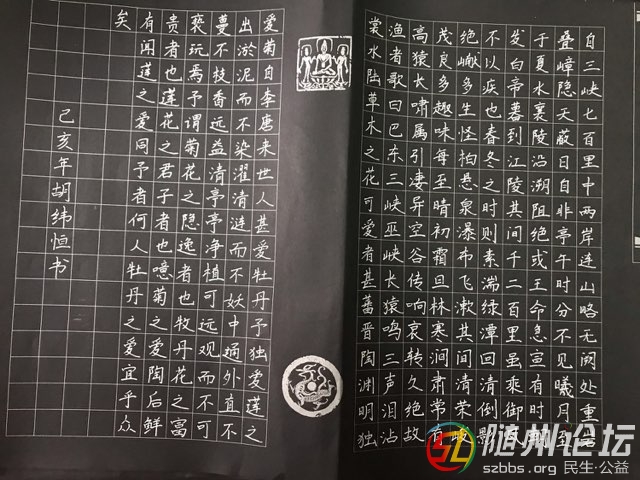 自三峡七百里中两岸连山略无阙处重岩
叠嶂隐天蔽日自非亭午时分不见曦月至
于夏水襄陵沿溯阻绝或王命急宣有时
发白帝暮到江陵其间千二百里虽乘御风
不以疾也春冬之时则素湍绿潭回清倒影
绝巘多生怪柏悬泉瀑布飞漱其间清荣峻
茂良多趣味每至晴初霜旦林寒涧肃常有
高猿长啸属引凄异空谷传响哀转久绝故
渔者歌曰巴东三峡巫峡长猿鸣三声泪沾
裳水陆草木之花可爱者甚蕃晋陶渊明独
爱菊自李唐来世人甚爱牡丹予独爱莲之
出淤泥而不染濯清涟而不妖中通外直不
蔓不枝香远益清亭亭净植可远观而不可
亵玩焉予谓菊花之隐逸者也牧丹花之富
贵者也莲花之君子者也噫菊之爱陶后鲜
有闻莲之爱同予者何人牡丹之爱宜乎众
矣
己亥年胡纬恒书
随州论坛
szbbs.org 民生·公益